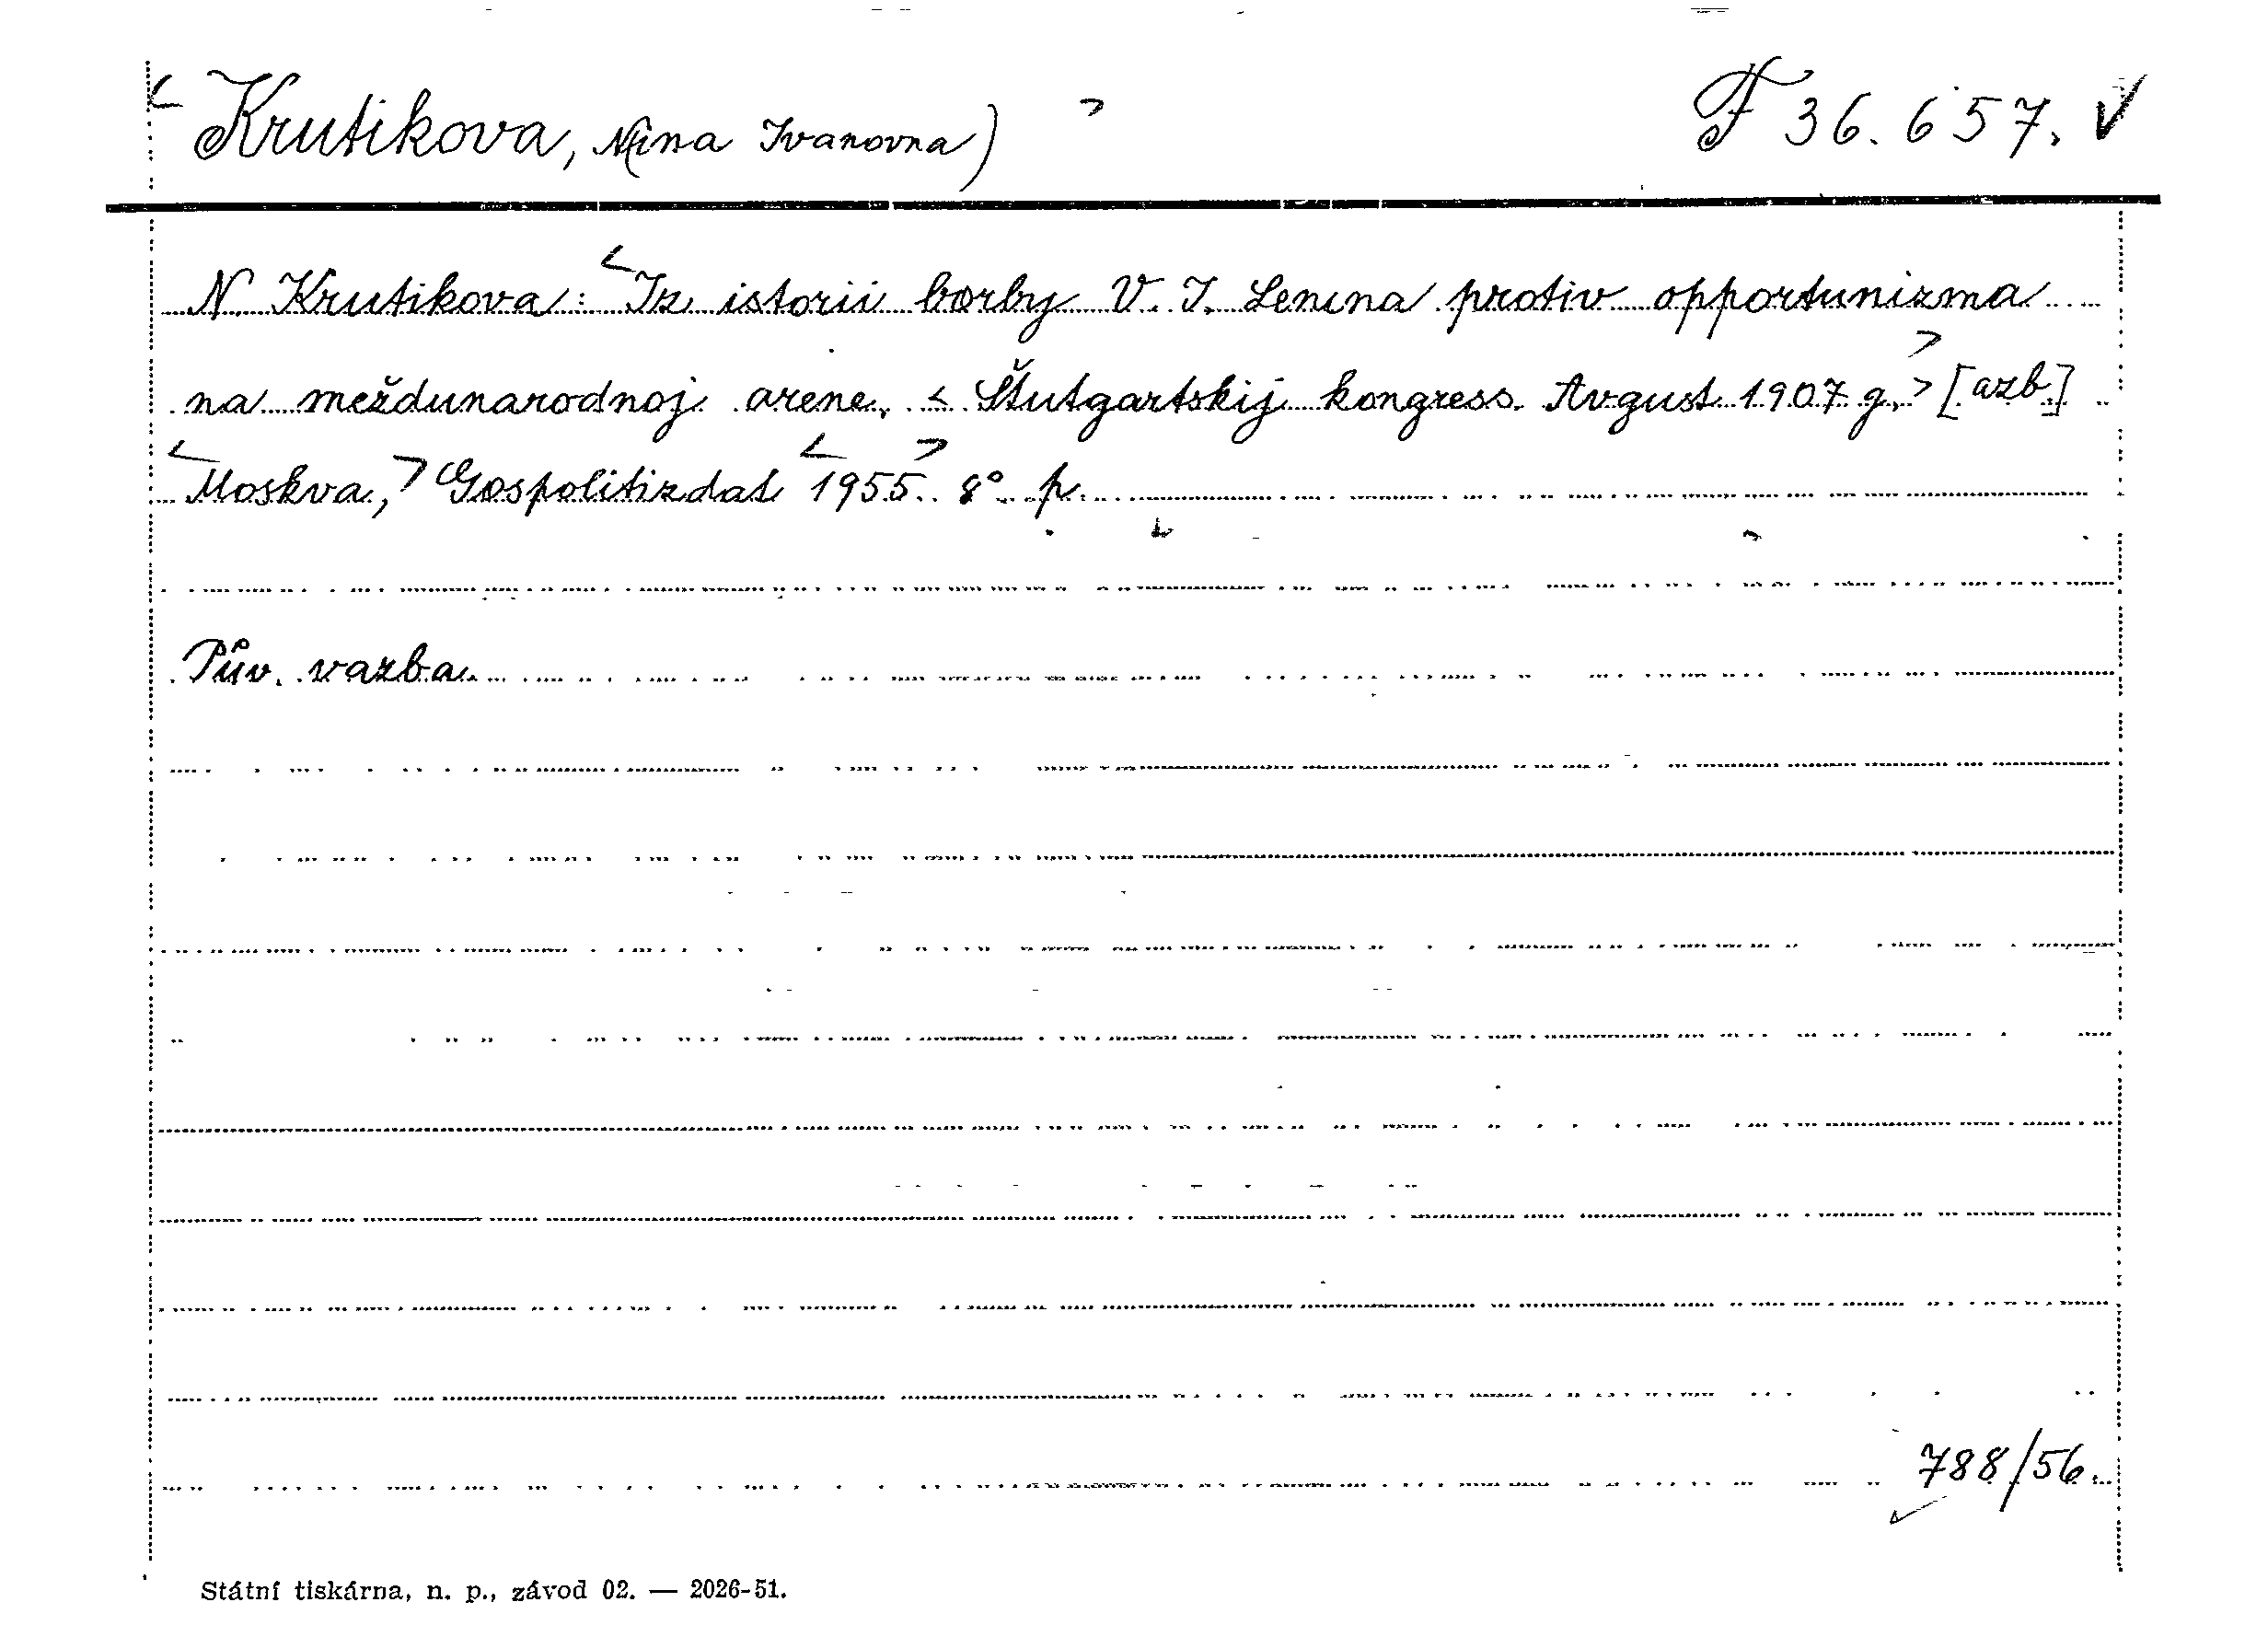 Krutikova, N(ina Ivanovna)
F 36.657.
N. Krutikova: Iz istorii borby V. I. Lenina protiv opportunizma
na meždunarodnoj arene. < Štutgartskij kongress. Avgust 1907 g. > [azb.]
Moskva, Gospolitizdat 1955. 8° p.
Pův. vazba.
788/56.
Státní tiskárna, n. p., závod 02. — 2026-51.